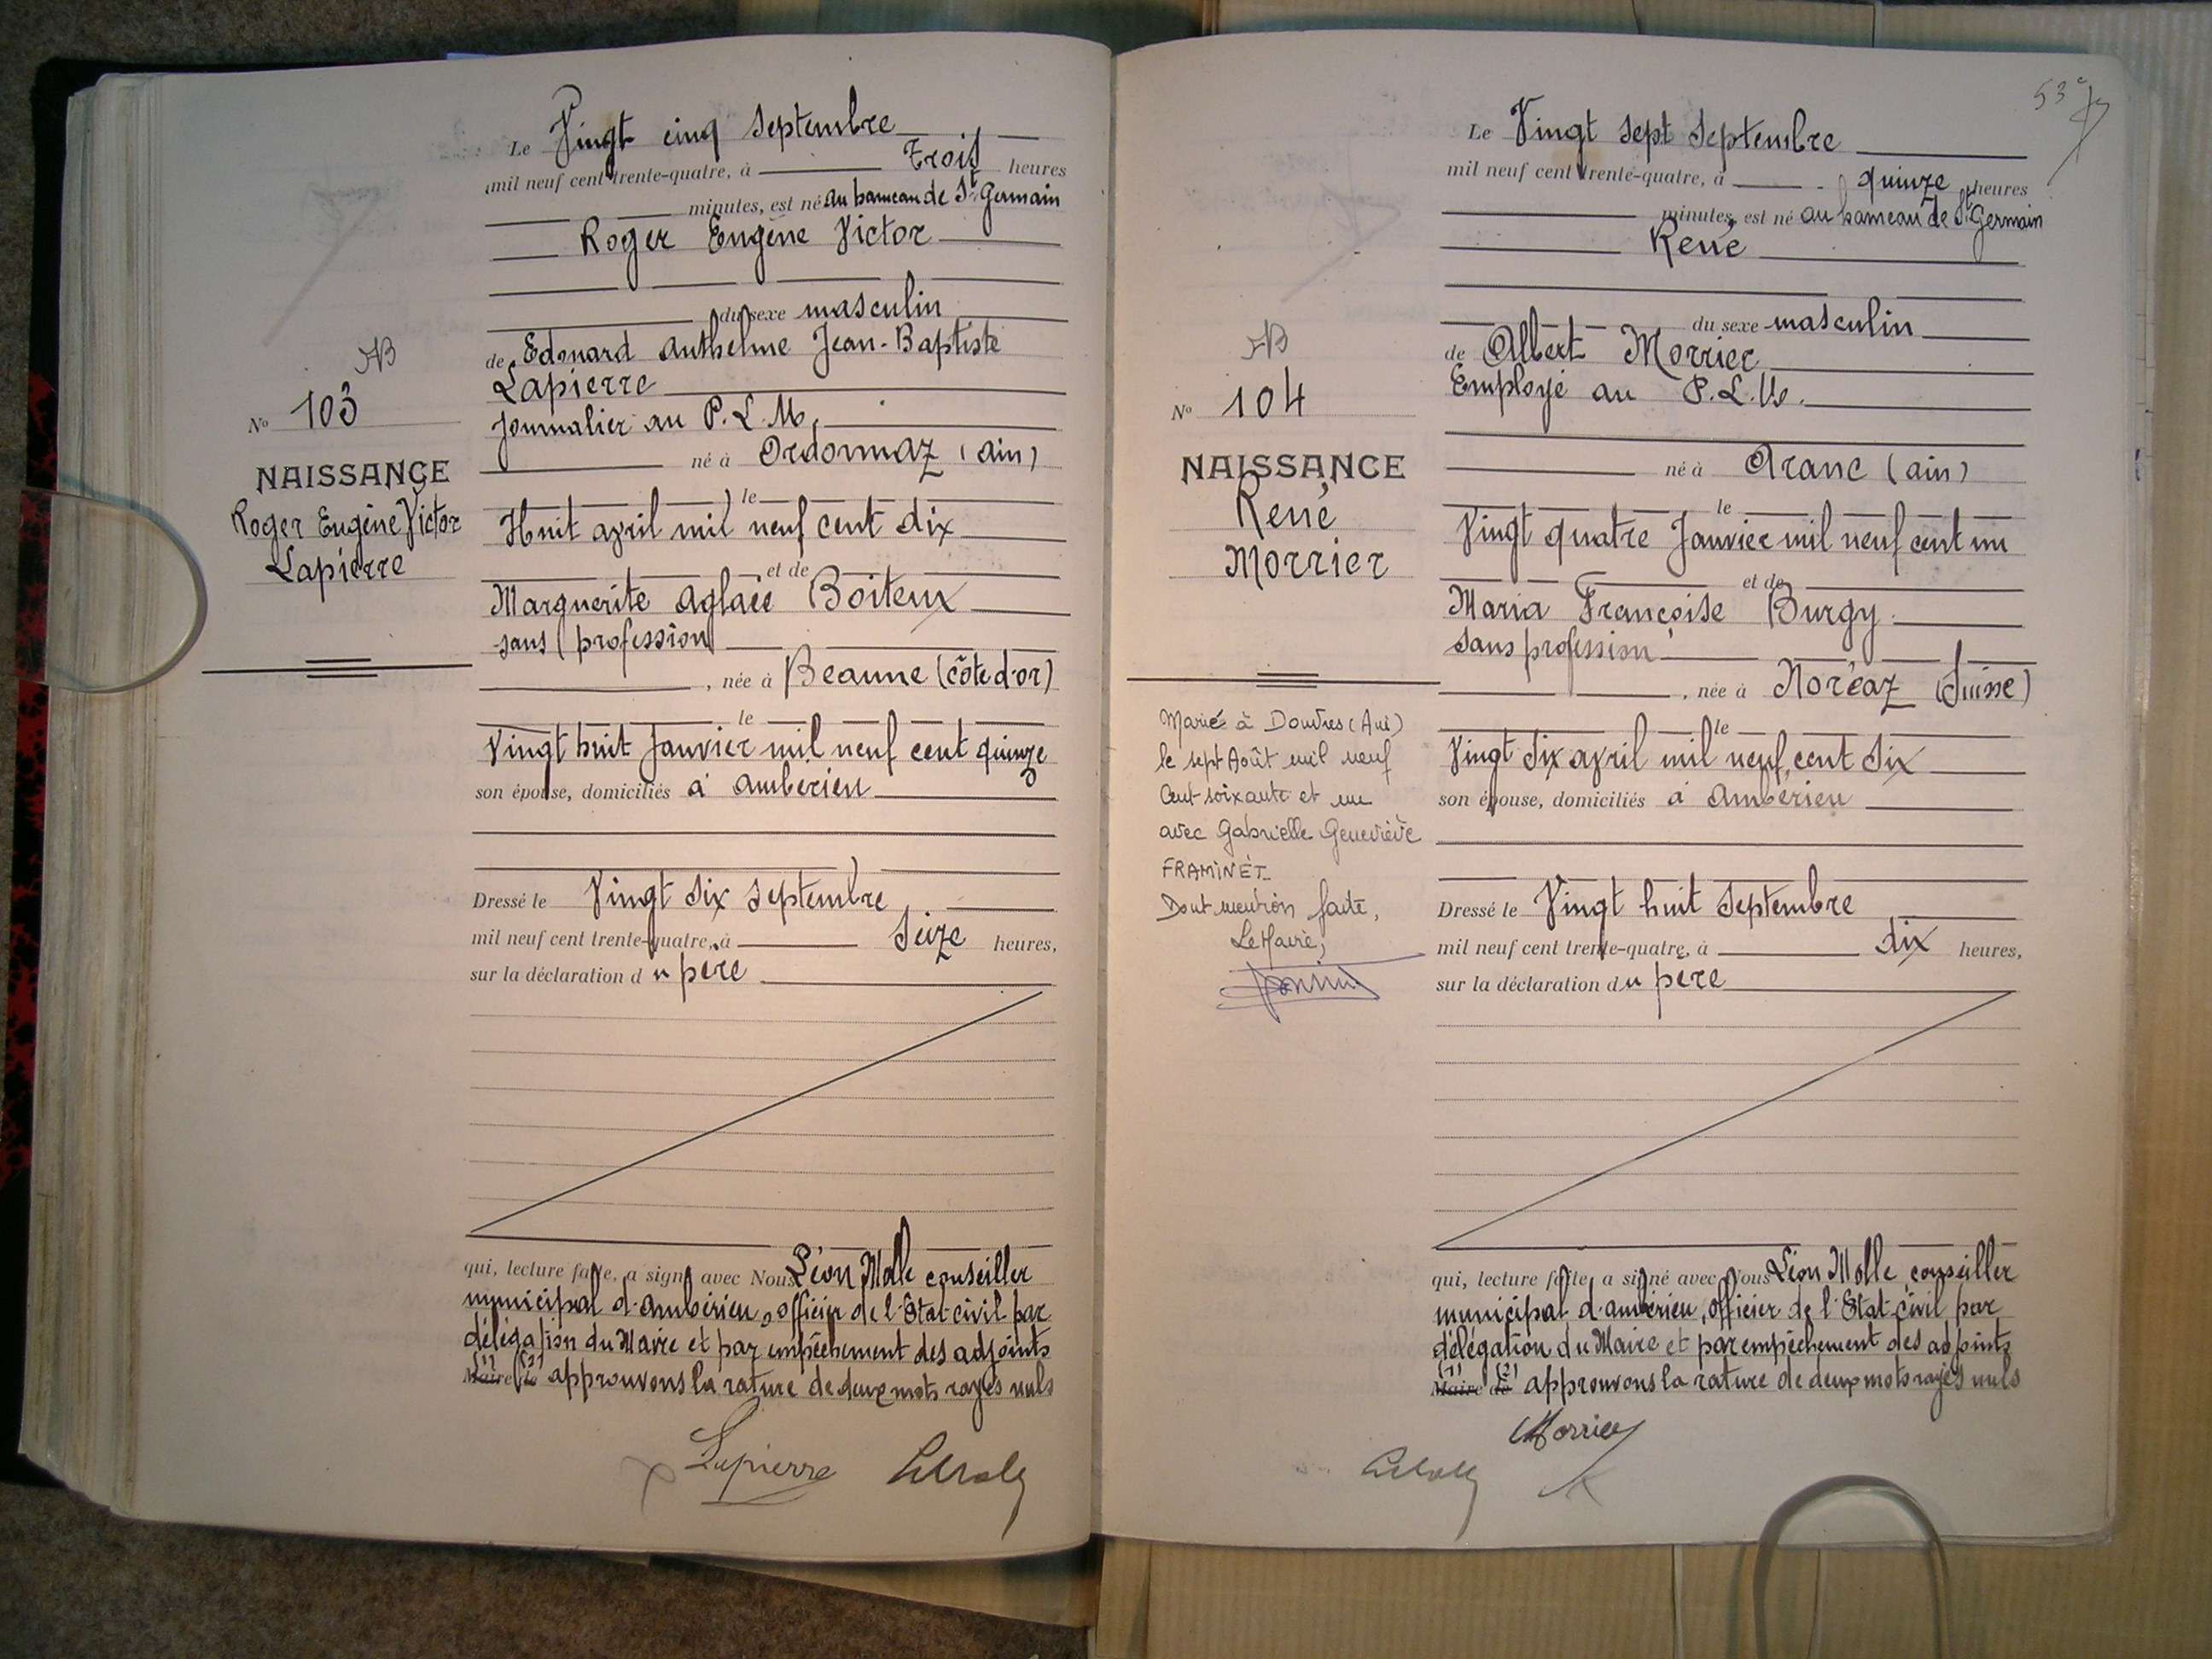 Le Vingt cinq Septembre
mil neuf cent trente-quatre, à Trois heures
minutes, est né au hameau de St Germain
Roger Eugène Victor
du sexe masculin
de Edouard Anthelme Jean-Baptiste
Lapierre
Journalier au P.L.M.
né à Ordonnaz (Ain)
le
Huit avril mil neuf cent dix
et de
Marguerite Aglaée Boiteux
sans profession
, née à Beaune (côte d'or)
le
Vingt huit Janvier mil neuf cent quinze
son épouse, domiciliés à Ambérieu
Dressé le Vingt six Septembre
mil neuf cent trente-quatre, à Seize heures,
sur la déclaration du père
qui, lecture faite, a signé avec Nous Léon Molle conseiller
municipal d'Ambérieu, officier de l'Etat-civil par
délégation du Maire et par empêchement des adjoints
Maire (1) de (2) approuvons la rature de deux mots rayés nuls
Lapierre
AB
No 103
NAISSANCE
Roger Eugène Victor
Lapierre
53e
Le Vingt sept Septembre
mil neuf cent trente-quatre, à quinze heures
minutes, est né au hameau de St Germain
René
du sexe masculin
de Albert Morrier
Employé au P.L.M.
né à Aranc (Ain)
le
Vingt quatre Janvier mil neuf cent un
et de
Maria Françoise Burgy
sans profession
, née à Noréaz (Suisse)
le
Vingt six avril mil neuf cent six
son épouse, domiciliés à Ambérieu
Dressé le Vingt huit Septembre
mil neuf cent trente-quatre, à dix heures,
sur la déclaration du père
qui, lecture faite, a signé avec Nous Léon Molle, conseiller
municipal d'Ambérieu, officier de l'Etat-civil par
délégation du Maire et par empêchement des adjoints
Maire (1) de (2) approuvons la rature de deux mots rayés nuls
Morrier
AB
No 104
NAISSANCE
René
Morrier
Marié à Douvres (Ain)
le sept Août mil neuf
cent soixante et un
avec Gabrielle Geneviève
FRAMINET
Dont mention faite,
Le Maire,